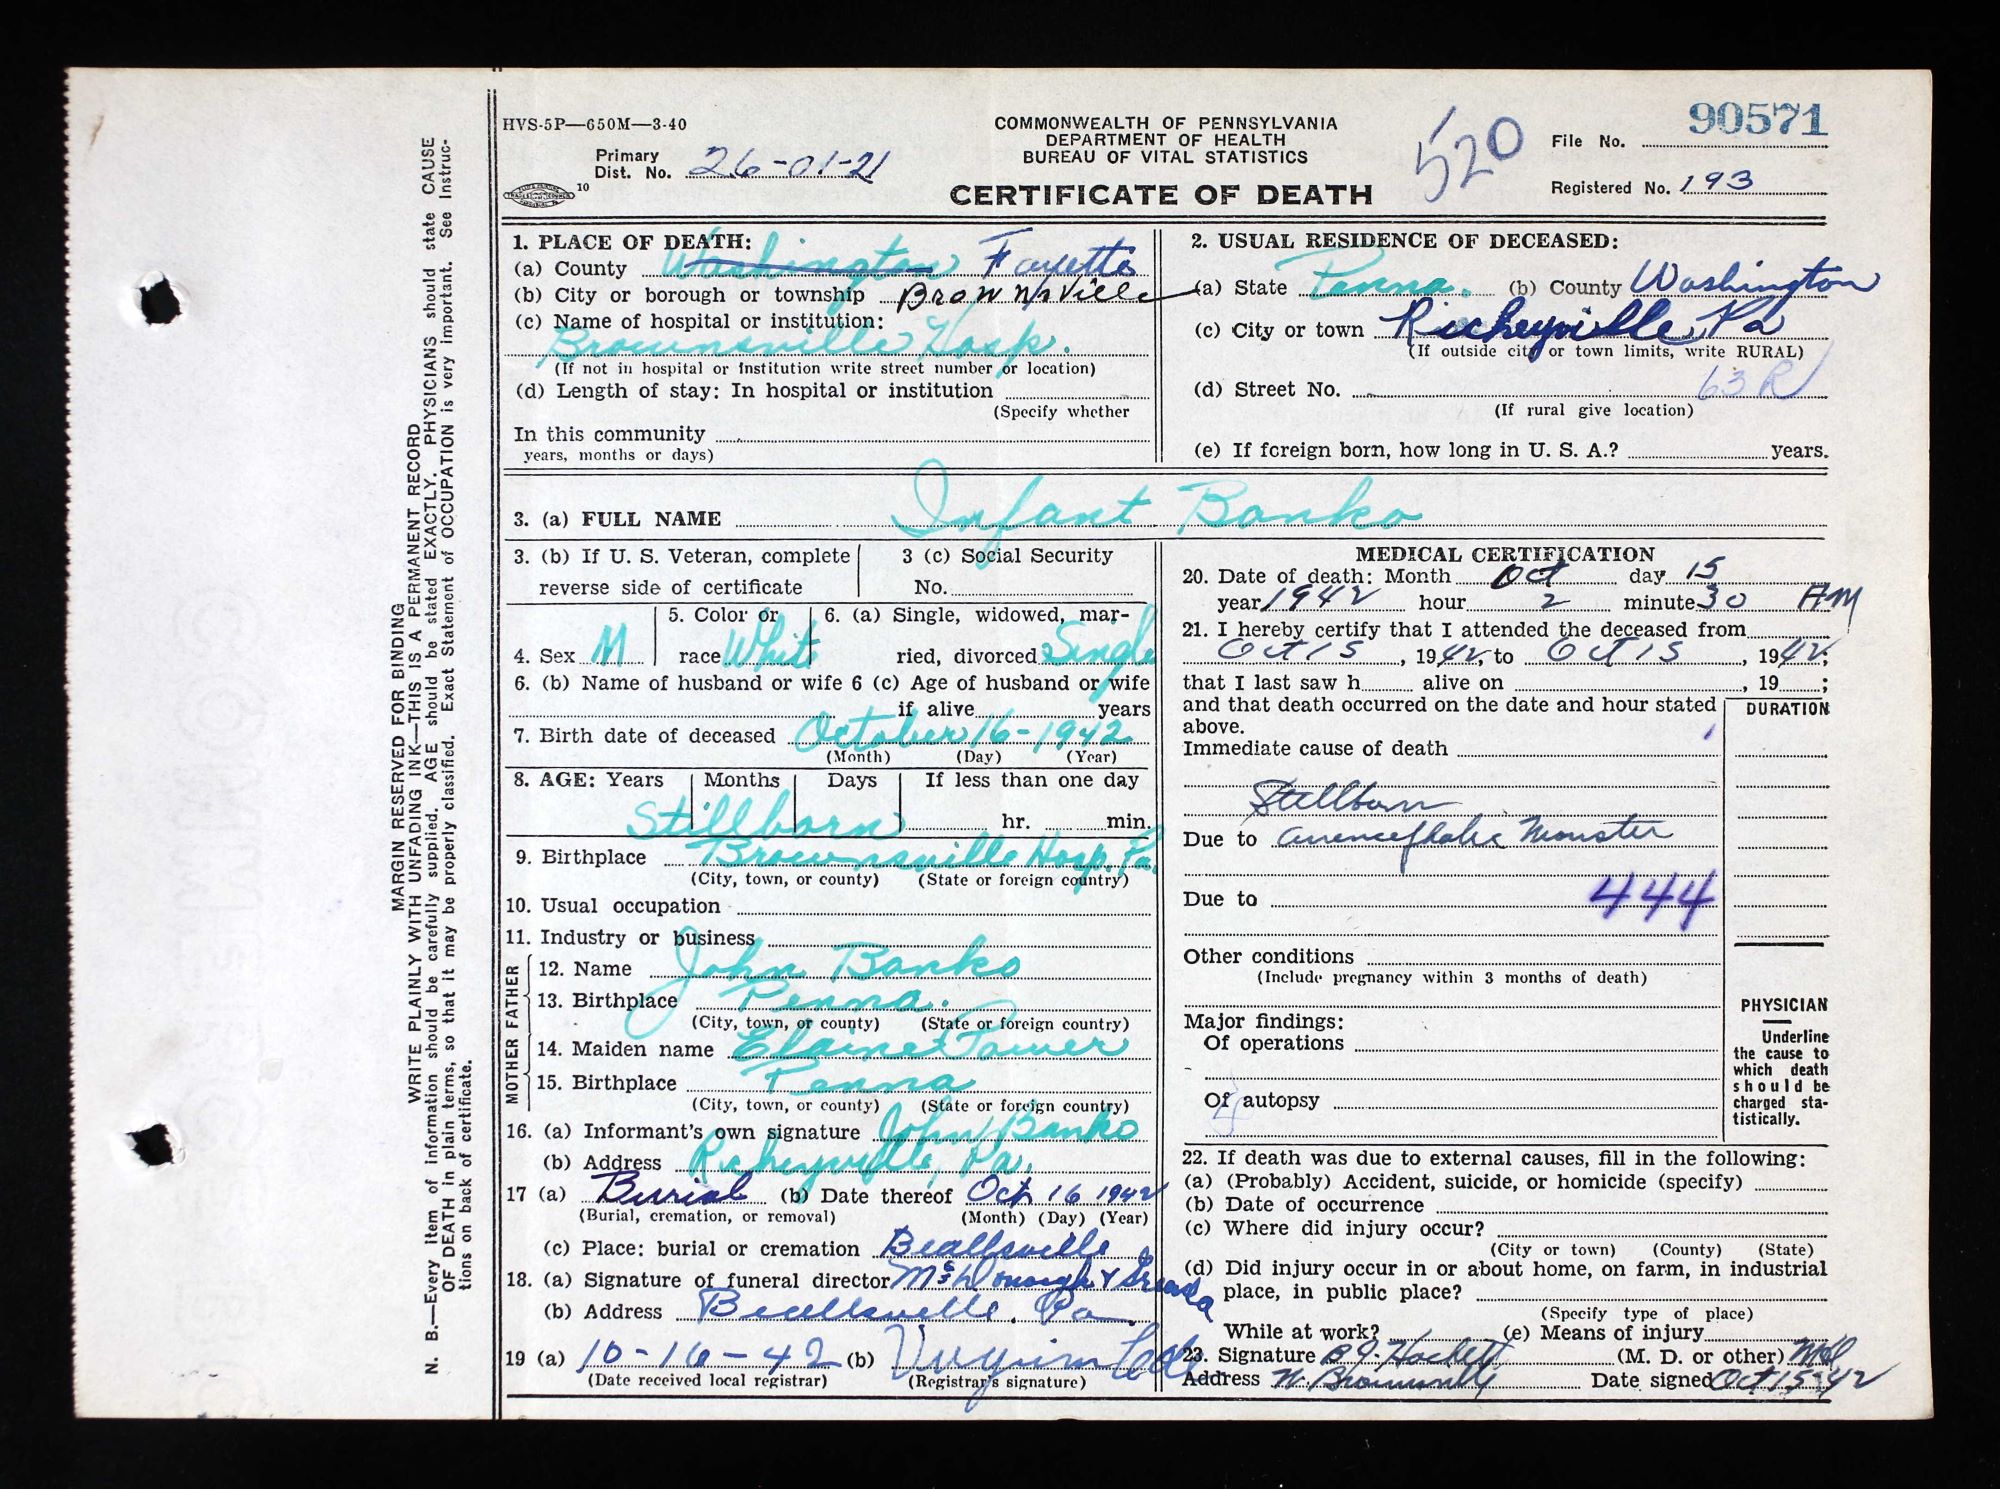 HVS-5P—650M—3-40
Primary
Dist. No. 26-01-21
10
COMMONWEALTH OF PENNSYLVANIA
DEPARTMENT OF HEALTH
BUREAU OF VITAL STATISTICS
CERTIFICATE OF DEATH
520
File No. 90571
Registered No. 193
MARGIN RESERVED FOR BINDING
WRITE PLAINLY WITH UNFADING INK—THIS IS A PERMANENT RECORD
N. B.—Every item of information should be carefully supplied. AGE should be stated EXACTLY. PHYSICIANS should state CAUSE
OF DEATH in plain terms, so that it may be properly classified. Exact Statement of OCCUPATION is very important. See Instruc-
tions on back of certificate.
1. PLACE OF DEATH:
(a) County Washington Fayette
(b) City or borough or township Brownsville
(c) Name of hospital or institution:
Brownsville Hosp.
(If not in hospital or Institution write street number or location)
(d) Length of stay: In hospital or institution
(Specify whether
In this community
years, months or days)
2. USUAL RESIDENCE OF DECEASED:
(a) State Penna. (b) County Washington
(c) City or town Richeyville, Pa
(If outside city or town limits, write RURAL)
63 R
(d) Street No.
(If rural give location)
(e) If foreign born, how long in U. S. A.? years.
3. (a) FULL NAME Infant Banko
3. (b) If U. S. Veteran, complete
reverse side of certificate
3 (c) Social Security
No.
4. Sex M
5. Color or
race White
6. (a) Single, widowed, mar-
ried, divorced Single
6. (b) Name of husband or wife 6 (c) Age of husband or wife
if alive years
7. Birth date of deceased October 16-1942
(Month) (Day) (Year)
8. AGE: Years Months Days If less than one day
Stillborn hr. min.
9. Birthplace Brownsville Hosp. Pa.
(City, town, or county) (State or foreign country)
10. Usual occupation
11. Industry or business
FATHER
12. Name John Banko
13. Birthplace Penna.
(City, town, or county) (State or foreign country)
MOTHER
14. Maiden name Elaine Power
15. Birthplace Penna
(City, town, or county) (State or foreign country)
16. (a) Informant's own signature John Banko
(b) Address Richeyville, Pa.
17 (a) Burial (b) Date thereof Oct 16 1942
(Burial, cremation, or removal) (Month) (Day) (Year)
(c) Place: burial or cremation Beallsville
18. (a) Signature of funeral director McDonough &
(b) Address Beallsville. Pa.
19 (a) 10-16-42 (b)
(Date received local registrar) (Registrar's signature)
MEDICAL CERTIFICATION
20. Date of death: Month Oct day 15
year 1942 hour 2 minute 30 AM
21. I hereby certify that I attended the deceased from
Oct 15, 1942, to Oct 15, 1942;
that I last saw h alive on , 19 ;
and that death occurred on the date and hour stated
above.
DURATION
Immediate cause of death
Stillborn
Due to anencephalic Monster
Due to 444
Other conditions
(Include pregnancy within 3 months of death)
Major findings:
Of operations
Of autopsy
PHYSICIAN
Underline
the cause to
which death
should be
charged sta-
tistically.
22. If death was due to external causes, fill in the following:
(a) (Probably) Accident, suicide, or homicide (specify)
(b) Date of occurrence
(c) Where did injury occur?
(City or town) (County) (State)
(d) Did injury occur in or about home, on farm, in industrial
place, in public place?
(Specify type of place)
While at work? (e) Means of injury
23. Signature (M. D. or other) MD
Address W. Brownsville Date signed Oct 15-42